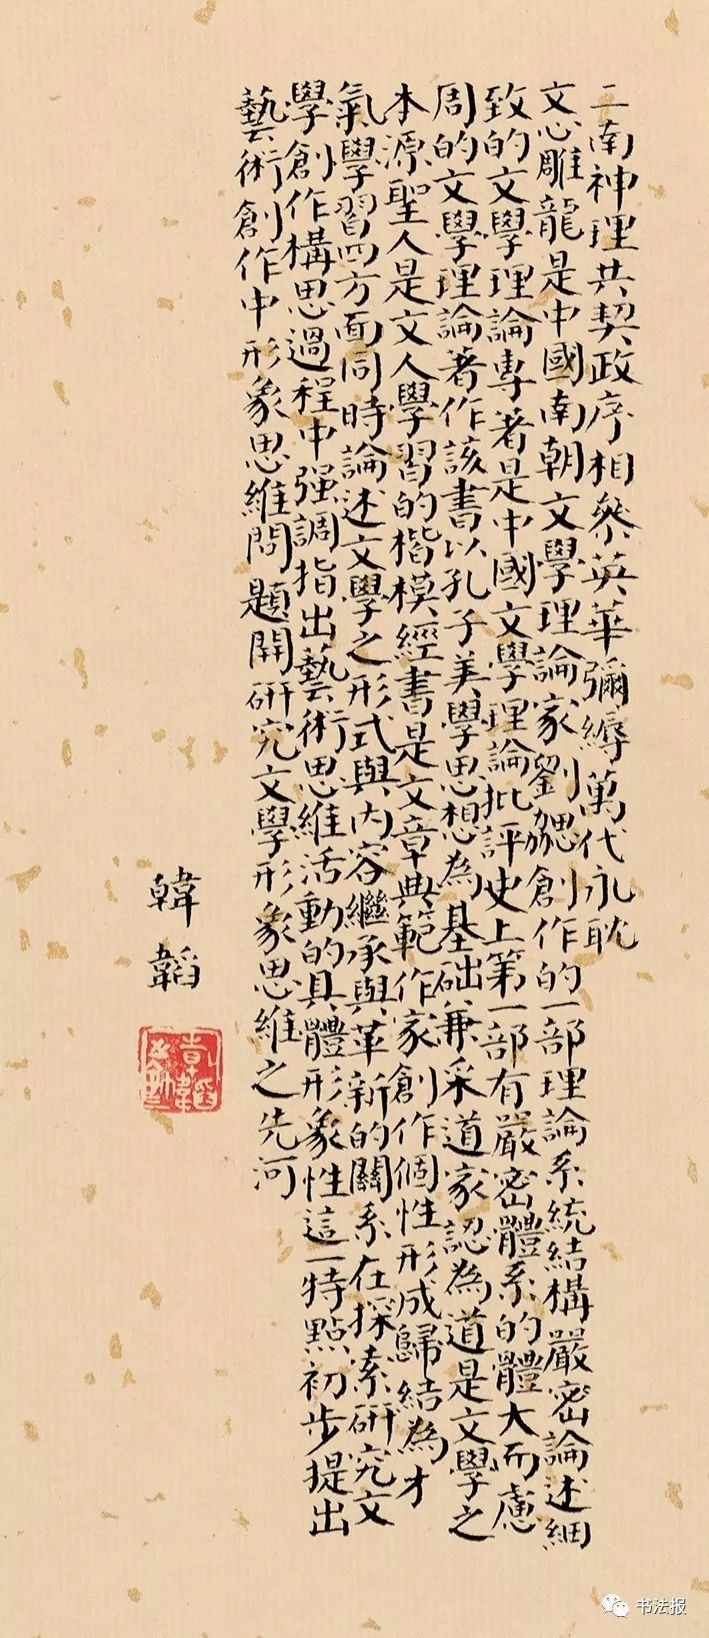 二南神理共契政序相叅英華彌縟萬代永耽
文心雕龍是中國南朝文學理論家劉勰創作的一部理論系統結構嚴密論述細
致的文學理論專著是中國文學理論批評史上第一部有嚴密體系的體大而慮
周的文學理論著作該書以孔子美學思想為基础兼采道家認為道是文學之
本源聖人是文人學習的楷模經書是文章典範作家創作個性形成歸結為才
氣學習四方面同時論述文學之形式與內容繼承與革新的關系在探索研究文
學創作構思過程中强調指出藝術思維活動的具體形象性這一特點初步提出
藝術創作中形象思維問題開研究文學形象思維之先河
韓韜
书法报